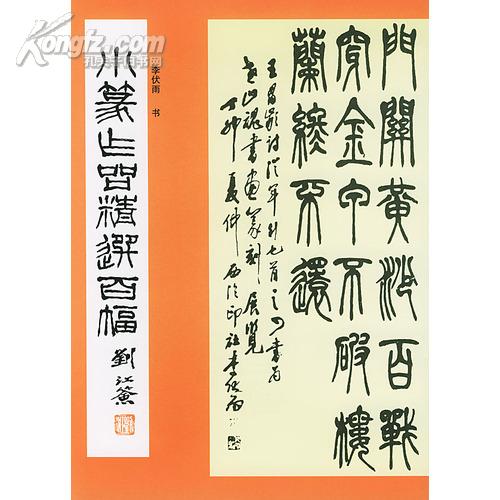 Kongfz.com
孔夫子旧书网
李伏雨 书
小篆作品精選百幅
劉江簽
門關黃沙百戰
穿金甲不破樓
蘭終不還
王昌龄诗从军行七首之四書为
老山魂書画篆刻展覽
丁卯夏仲西泠印社李伏雨